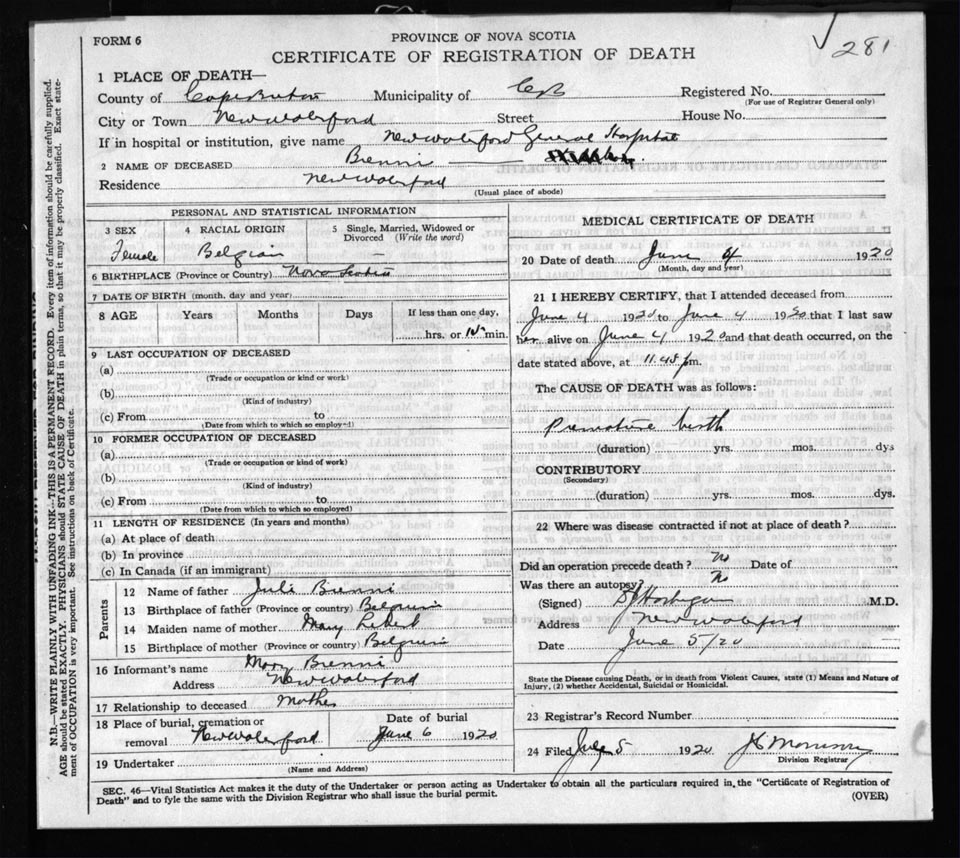 281
FORM 6
PROVINCE OF NOVA SCOTIA
CERTIFICATE OF REGISTRATION OF DEATH
1 PLACE OF DEATH—
County of Cape Breton Municipality of CB Registered No.
(For use of Registrar General only)
City or Town New Waterford Street House No.
If in hospital or institution, give name New Waterford General Hospital
2 NAME OF DECEASED Brenni
Residence New Waterford
(Usual place of abode)
PERSONAL AND STATISTICAL INFORMATION
3 SEX 4 RACIAL ORIGIN 5 Single, Married, Widowed or Divorced (Write the word)
Female Belgian —
6 BIRTHPLACE (Province or Country) Nova Scotia
7 DATE OF BIRTH (month, day and year)
8 AGE Years Months Days If less than one day,
hrs. or 10 min.
9 LAST OCCUPATION OF DECEASED
(a)
(Trade or occupation or kind or work)
(b)
(Kind of industry)
(c) From to
(Date from which to which so employed)
10 FORMER OCCUPATION OF DECEASED
(a)
(Trade or occupation or kind of work)
(b)
(Kind of industry)
(c) From to
(Date from which to which so employed)
11 LENGTH OF RESIDENCE (In years and months)
(a) At place of death
(b) In province
(c) In Canada (if an immigrant)
Parents
12 Name of father Juli Brenni
13 Birthplace of father (Province or country) Belguim
14 Maiden name of mother Mary
15 Birthplace of mother (Province or country) Belguim
16 Informant's name Mary Brenni
Address New Waterford
17 Relationship to deceased Mother
18 Place of burial, cremation or removal New Waterford Date of burial June 6 1920
19 Undertaker
(Name and Address)
MEDICAL CERTIFICATE OF DEATH
20 Date of death June 4 1920
(Month, day and year)
21 I HEREBY CERTIFY, that I attended deceased from
June 4 1920 to June 4 1920 that I last saw
her alive on June 4 1920 and that death occurred, on the
date stated above, at 11.45 pm.
The CAUSE OF DEATH was as follows:
Premature birth
(duration) yrs. mos. dys
CONTRIBUTORY
(Secondary)
(duration) yrs. mos. dys.
22 Where was disease contracted if not at place of death?
Did an operation precede death? No Date of
Was there an autopsy? No
(Signed) M.D.
Address New Waterford
Date June 5/20
State the Disease causing Death, or in death from Violent Causes, state (1) Means and Nature of
Injury, (2) whether Accidental, Suicidal or Homicidal.
23 Registrar's Record Number
24 Filed July 5 1920 Morrison
Division Registrar
SEC. 46—Vital Statistics Act makes it the duty of the Undertaker or person acting as Undertaker to obtain all the particulars required in the "Certificate of Registration of
Death" and to fyle the same with the Division Registrar who shall issue the burial permit.
(OVER)
N.B.—WRITE PLAINLY WITH UNFADING INK—THIS IS A PERMANENT RECORD. Every item of information should be carefully supplied.
AGE should be stated EXACTLY. PHYSICIANS should STATE CAUSE OF DEATH in plain terms, so that it may be properly classified. Exact state-
ment of OCCUPATION is very important. See instructions on back of Certificate.